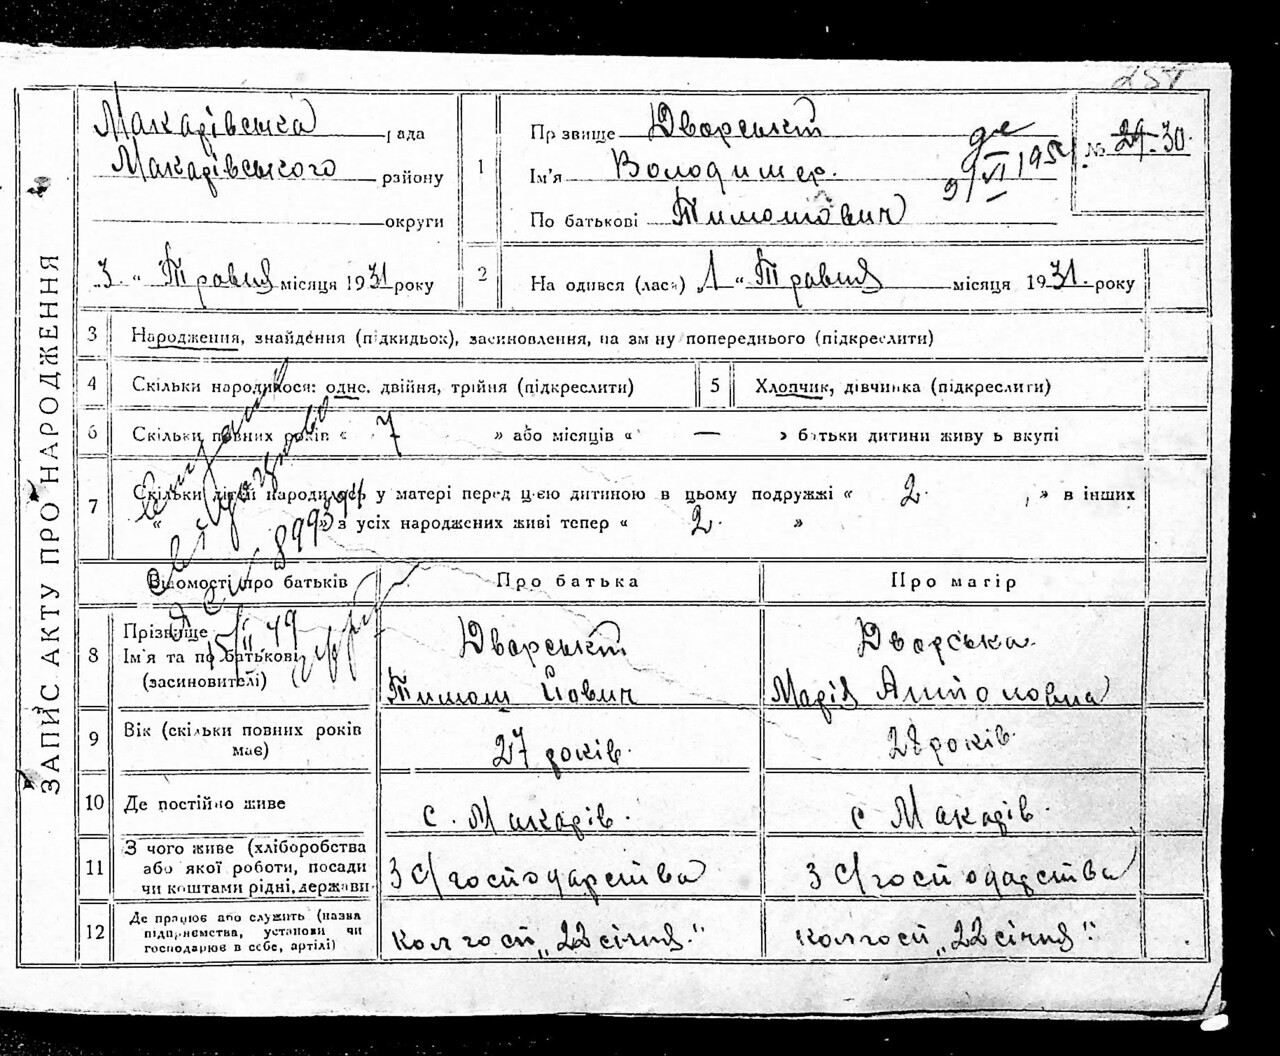 ЗАПИС АКТУ ПРО НАРОДЖЕННЯ
Макарівська рада
Макарівського району
округи
3 " Травня місяця 1931 року
1
Прізвище Дворський
Ім'я Володимер.
По батькові Тимошович
9/VI 195
№ 29. 30.
2
На одився (лася) 1 " Травня місяця 1931. року
3 Народження, знайдення (підкидьок), засиновлення, на зм ну попереднього (підкреслити)
4 Скільки народилося: одне, двійня, трійня (підкреслити)
5 Хлопчик, дівчинка (підкреслити)
6 Скільки повних років « 7 » або місяців « — » батьки дитини живу ь вкупі
7 Скільки дітей народилось у матері перед цією дитиною в цьому подружжі « 2. , » в інших
« » з усіх народжених живі тепер « 2. »
899394
5/II 49
Відомості про батьків
Про батька
Про матір
8 Прізвище
Ім'я та по батькові
(засиновителі)
Дворський
Тимош Йович
Дворська.
Марія Антоновна
9 Вік (скільки повних років має)
27 років.
28 років.
10 Де постійно живе
с. Макарів.
с Макарів
11 З чого живе (хліборобства
або якої роботи, посади
чи коштами рідні, держави
З с/господарства
З с/господарства
12 Де працює або служить (назва
підприємства, установи чи
господарює в себе, артілі)
колгосп „22 січня."
колгосп „22 січня".